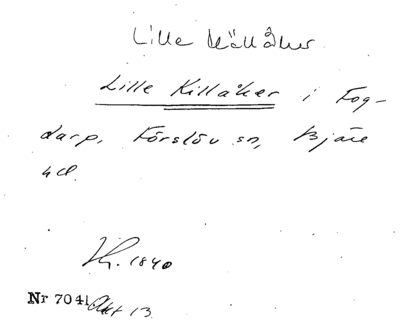 Lille Källåker
Lille Killåker i Fog-
darp, Förslöv sn, Bjäre
hd.
1840
Nr 7041 Akt 13.